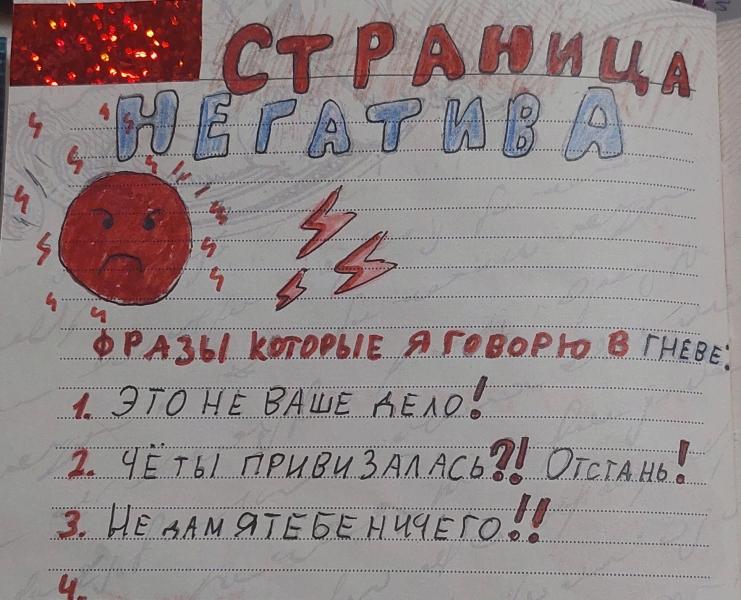 СТРАНИЦА
НЕГАТИВА
ФРАЗЫ КОТОРЫЕ Я ГОВОРЮ В ГНЕВЕ:
1. ЭТО НЕ ВАШЕ ДЕЛО!
2. ЧЁ ТЫ ПРИВИЗАЛАСЬ?! ОТСТАНЬ!
3. НЕ ДАМ Я ТЕБЕ НИЧЕГО!!
4.